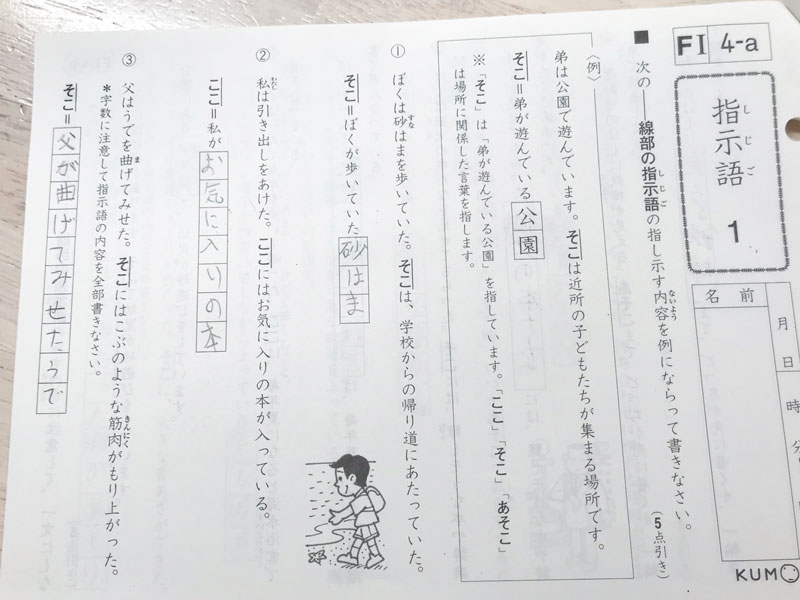 FI 4-a
指示語 1
しじご
名前
月 日 時 分
■ 次の――線部の指示語の指し示す内容を例にならって書きなさい。
しじご
ないよう
(5点引き)
〈例〉
弟は公園で遊んでいます。そこは近所の子どもたちが集まる場所です。
そこ=弟が遊んでいる公園
※「そこ」は「弟が遊んでいる公園」を指しています。「ここ」「そこ」「あそこ」
は場所に関係した言葉を指します。
① ぼくは砂はまを歩いていた。そこは、学校からの帰り道にあたっていた。
すな
そこ=ぼくが歩いていた砂はま
② 私は引き出しをあけた。ここにはお気に入りの本が入っている。
ここ=私がお気に入りの本
③ 父はうでを曲げてみせた。そこにはこぶのような筋肉がもり上がった。
ま
きんにく
*字数に注意して指示語の内容を全部書きなさい。
そこ=父が曲げてみせたうで
KUMON